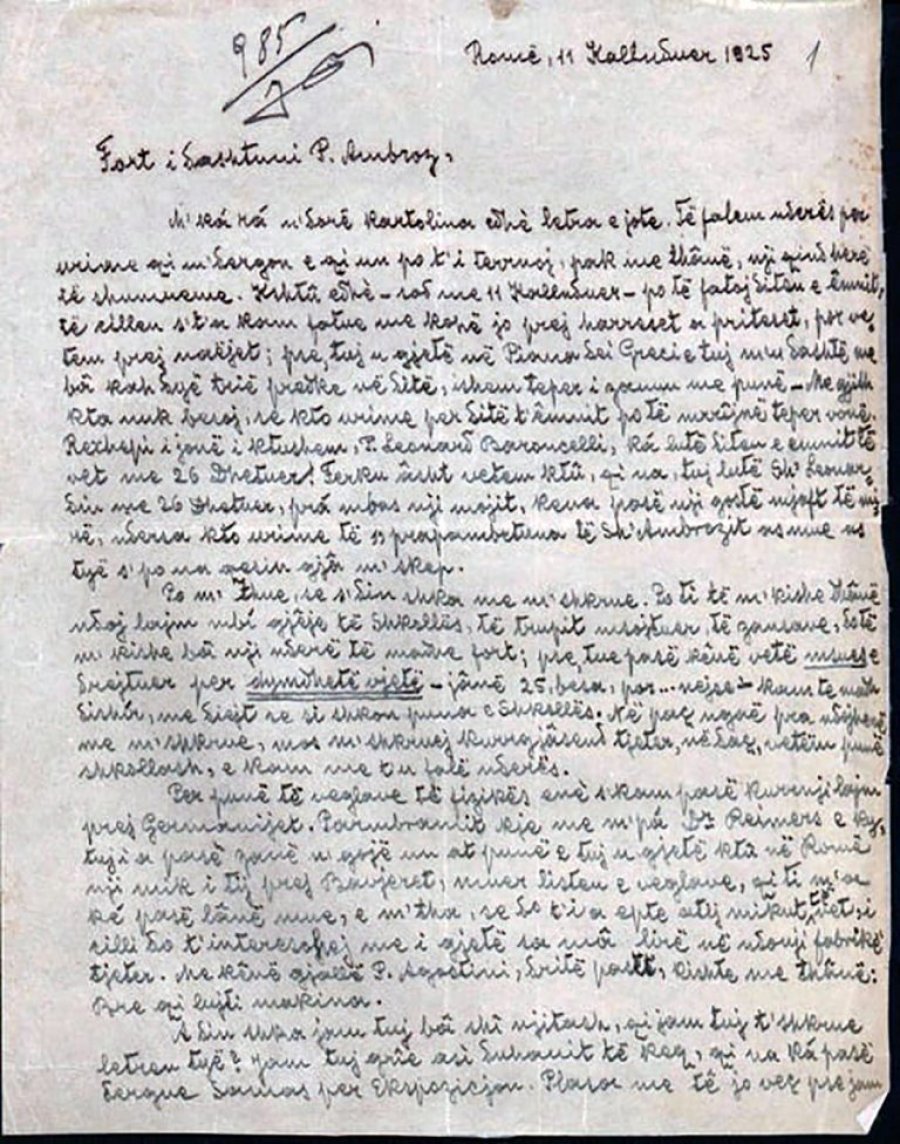 985
Romë, 11 Kallnduer 1925 1
Fort i dashtuni P. Ambroz,
M'ká rá n'dorë kartolina edhè letra e jote. Të falem nderës për
urime qi m'dergon e qi un po t'i tërrnoj, pak me thânë, nji qind herë
të shumueme. Kshtû edhè – sod me 11 Kallnduer – po të fatoj diten e êmnit,
të cillen s't'a kam fatue me kohë jo prej harreset a priteset, por ve-
tem prej ; pse, tuj u gjetë në Piana dei Greci e tuj m'u dashtë me
bâ kah dyë trië predke në ditë, ishem teper i zanun me punë – Me gjith
kta nuk besoj, se kto urime per ditë t'êmnit po të mrrîjnë teper vonë.
i jonë i ktushem, P. Leonard Baroncelli, ká lutë diten e emnit të
vet me 26 Dhetuer! Ferku âsht vetem ktû, qi na, tuj lutë Sh' Leonar-
din me 26 Dhetuer, prá mbas nji mojit, kena pasë nji gostë mjaft të mi-
rë, ndersa kto urime të prapambetuna të Sh'Ambrozit as mue as
tyë s'po na qesin gjâ m'skep.
Po m'thue, se s'din shka me m'shkrue. Po ti të m'kishe thânë
ndoj lajm mbi gjêje të Shkollës, të trupit msojtuer, të zansave, do të
m'kishe bâ nji nderë të madhe fort; pse, tue pasë kênë vetë msues e
drejtuer per dymdhetë vjetë – jânë 25, besa, por... nejse – kam të madh
dishir, me dijt se si shkon puna e Shkollës. Në paç ngaë pra ndojherë
me m'shkrue, mos m'shkruej kurrgjâsend tjeter, në daç, vetëm punë
shkollash, e kam me t'u falë nderës.
Per punë të veglave të fizikës enè s'kam pasë kurrnji lajm
prej Germanijet. Parmbramit kje me m'pá Dr. Reimers e ky,
tuj i a pasë zanë n'gojë un at punë e tuj u gjetë ktû në Romë
nji mik i tij prej Bavjeret, muer listen e veglave, qi ti m'a
ké pasë lânë mue, e m'tha, se do t'i a epte atij mikut të vet, i
cilli do t'interesohej me i gjetë sa mâ lirë në ndonji fabrikë
tjeter. Me kênë gjallë P. Agostini, dritë pastë, kishte me thânë:
Bre qi lujti makina.
A din shka jam tuj bâ shî njitash, qi jam tuj t'shkrue
letren tyë? Jam tuj grîe asi duhanit të keq, qi na ká pasë
dergue Lamas per Ekspozicjon. Plasa me të jo veç pse jam